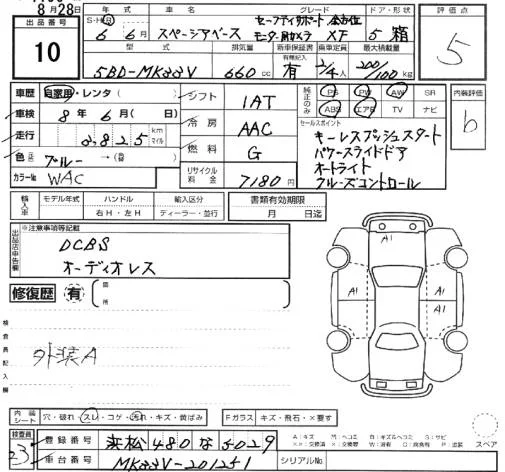 8月28日
出品番号
10
年式 車名 グレード ドア・形状
S・H・R 6 6月 スペーシアベース セーフティサポート 全方位モニター用カメラ XF 5 箱
型式 排気量 新車保証書 有無記入 乗車定員 最大積載量
5BD-MK33V 660cc 有 2/4人 200/100kg
評価点
5
車歴 自家用・レンタ シフト 1AT
車検 8年6月( 日) 冷房 AAC
走行 2,825 km マイル 燃料 G
色 ブルー→( ) リサイクル料金 7180円
カラー№ WAC
純正のみ PS PW AW SR
ABS エアB TV ナビ
内装評価
b
セールスポイント
キーレスプッシュスタート
パワースライドドア
オートライト
クルーズコントロール
輸入車 モデル年式 ハンドル 輸入区分 書類有効期限
右H・左H ディーラー・並行 月 日迄
出品店申告欄 ※注意事項等記載
DCBS
オーディオレス
修復歴 有 箇所
検査員記入欄
外装A
A1
A1 A1
内装シート 穴・破れ・スレ・コゲ・汚れ・キズ・黄ばみ Fガラス キズ・飛石・×要す
検査員 23
登録番号 浜松480な5029
車台番号 MK33V-201251 シリアルNo.
スペア